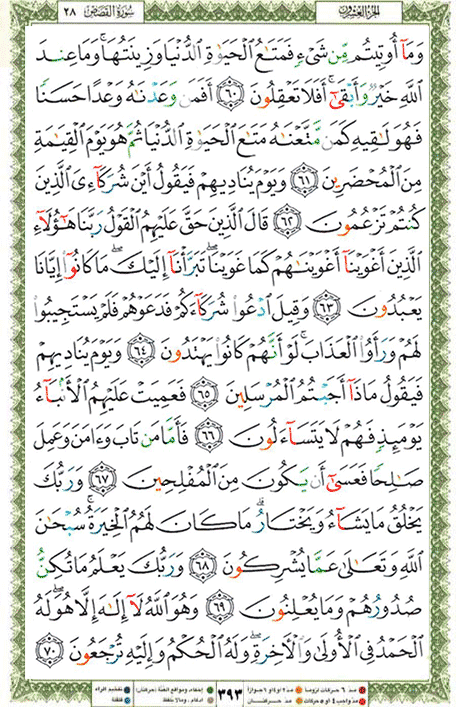 الجزء العشرون سورة القصص ٢٨
وَمَآ أُوتِيتُم مِّن شَىْءٍ فَمَتَـٰعُ ٱلْحَيَوٰةِ ٱلدُّنْيَا وَزِينَتُهَا ۚ وَمَا عِندَ
ٱللَّهِ خَيْرٌ وَأَبْقَىٰٓ ۚ أَفَلَا تَعْقِلُونَ ٦٠ أَفَمَن وَعَدْنَـٰهُ وَعْدًا حَسَنًا
فَهُوَ لَـٰقِيهِ كَمَن مَّتَّعْنَـٰهُ مَتَـٰعَ ٱلْحَيَوٰةِ ٱلدُّنْيَا ثُمَّ هُوَ يَوْمَ ٱلْقِيَـٰمَةِ
مِنَ ٱلْمُحْضَرِينَ ٦١ وَيَوْمَ يُنَادِيهِمْ فَيَقُولُ أَيْنَ شُرَكَآءِىَ ٱلَّذِينَ
كُنتُمْ تَزْعُمُونَ ٦٢ قَالَ ٱلَّذِينَ حَقَّ عَلَيْهِمُ ٱلْقَوْلُ رَبَّنَا هَـٰٓؤُلَآءِ
ٱلَّذِينَ أَغْوَيْنَآ أَغْوَيْنَـٰهُمْ كَمَا غَوَيْنَا ۖ تَبَرَّأْنَآ إِلَيْكَ ۖ مَا كَانُوٓا۟ إِيَّانَا
يَعْبُدُونَ ٦٣ وَقِيلَ ٱدْعُوا۟ شُرَكَآءَكُمْ فَدَعَوْهُمْ فَلَمْ يَسْتَجِيبُوا۟
لَهُمْ وَرَأَوُا۟ ٱلْعَذَابَ ۚ لَوْ أَنَّهُمْ كَانُوا۟ يَهْتَدُونَ ٦٤ وَيَوْمَ يُنَادِيهِمْ
فَيَقُولُ مَاذَآ أَجَبْتُمُ ٱلْمُرْسَلِينَ ٦٥ فَعَمِيَتْ عَلَيْهِمُ ٱلْأَنۢبَآءُ
يَوْمَئِذٍ فَهُمْ لَا يَتَسَآءَلُونَ ٦٦ فَأَمَّا مَن تَابَ وَءَامَنَ وَعَمِلَ
صَـٰلِحًا فَعَسَىٰٓ أَن يَكُونَ مِنَ ٱلْمُفْلِحِينَ ٦٧ وَرَبُّكَ
يَخْلُقُ مَا يَشَآءُ وَيَخْتَارُ ۗ مَا كَانَ لَهُمُ ٱلْخِيَرَةُ ۚ سُبْحَـٰنَ
ٱللَّهِ وَتَعَـٰلَىٰ عَمَّا يُشْرِكُونَ ٦٨ وَرَبُّكَ يَعْلَمُ مَا تُكِنُّ
صُدُورُهُمْ وَمَا يُعْلِنُونَ ٦٩ وَهُوَ ٱللَّهُ لَآ إِلَـٰهَ إِلَّا هُوَ ۖ لَهُ
ٱلْحَمْدُ فِى ٱلْأُولَىٰ وَٱلْـَٔاخِرَةِ ۖ وَلَهُ ٱلْحُكْمُ وَإِلَيْهِ تُرْجَعُونَ ٧٠
مد ٦ حركات لزوماً مد ٢ أو ٤ أو ٦ جوازاً ٣٩٣ إخفاء، ومواقع الغنّة (حركتان) تفخيم الراء
مد واجب ٤ أو ٥ حركات مد حركتان إدغام، وما لا يُلفظ قلقلة